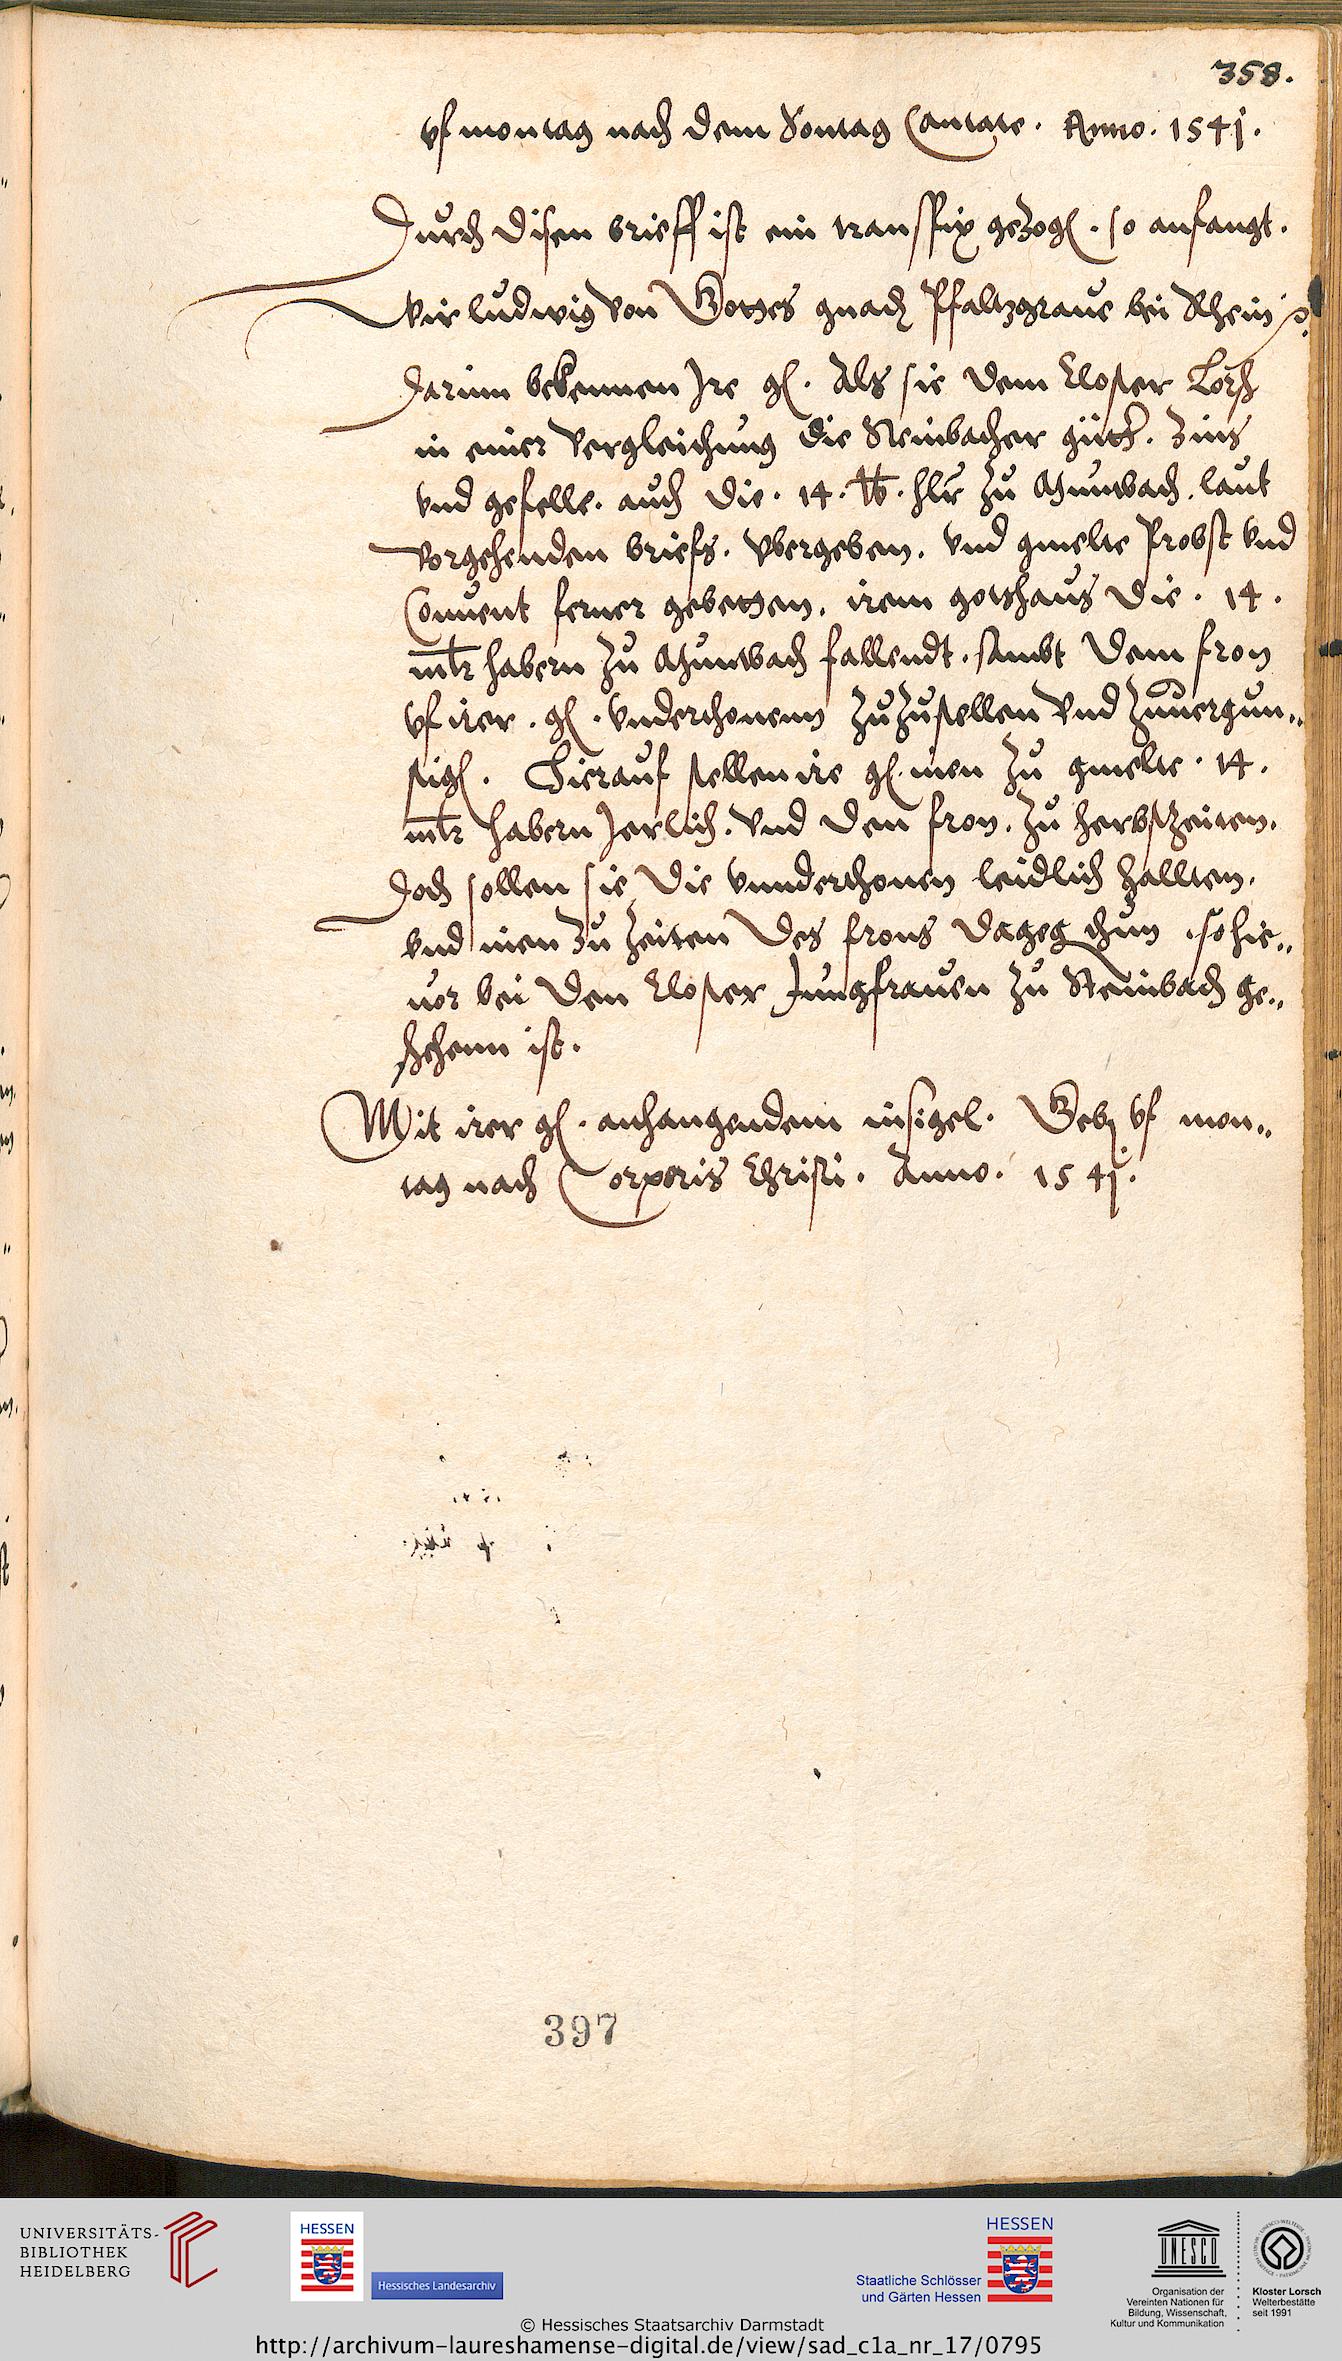 358.
vf montag nach dem Sontag Cantate. Anno. 1541.
Durch disen brieff ist ein transffix gezogen. so anfangt.
Wir ludwig von Gottes gnaden Pfaltzgraue bei Rhein
Darinn bekennen Ire g. Als sie dem Closter Lorsch
in einer vergleichung die Steinbacher gütter. Zins
vnd gefelle. auch die. 14. lb. hlr zu Munbach. laut
vorgehenden briefs. vbergeben. vnd gmelte Probst vnd
Conuent ferner gebetten. irem gotshaus die. 14.
mlr habern zu Munbach fallendt. sambt dem fron
vf irer. g. vnderthonenn zuzustellen vnd zuuergun„
stigen. Hierauf stellen ire g. inen zu gmelte. 14.
mlr habern Jerlich. vnd den fron. zu herbstzeiten.
Doch sollen sie die vnnderthonen leidlich hallten.
vnd inen zu zeiten des frons dagegen thun. so hie„
uor bei den Closter Jungfrauen zu Steinbach ge„
schehenn ist.
Mit irer g. anhangendem insigel. Geben vf mon„
tag nach Corporis Christi. Anno. 1541.
397
UNIVERSITÄTS-
BIBLIOTHEK
HEIDELBERG
HESSEN
Hessisches Landesarchiv
HESSEN
Staatliche Schlösser
und Gärten Hessen
UNESCO
Organisation der
Vereinten Nationen für
Bildung, Wissenschaft,
Kultur und Kommunikation
Kloster Lorsch
Welterbestätte
seit 1991
© Hessisches Staatsarchiv Darmstadt
http://archivum-laureshamense-digital.de/view/sad_c1a_nr_17/0795